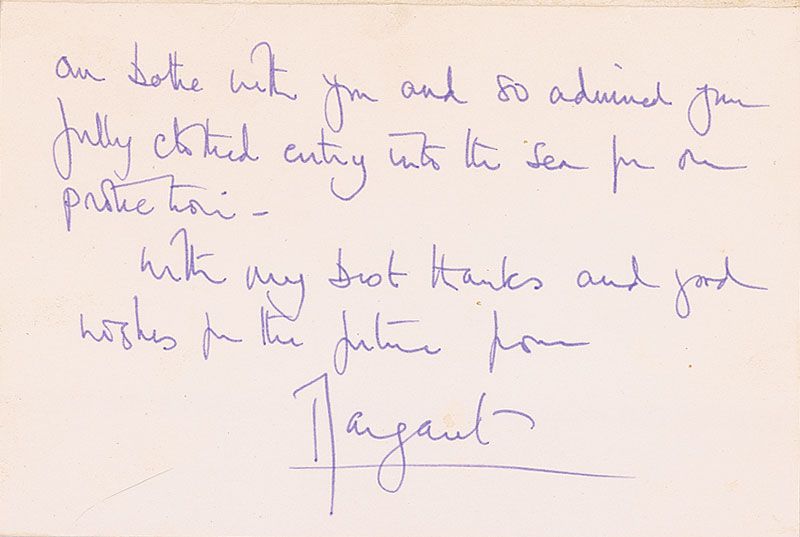 our bathe with you and so admired your
fully clothed entry into the sea for our
protection -
with my best thanks and good
wishes for the future from
Margaret